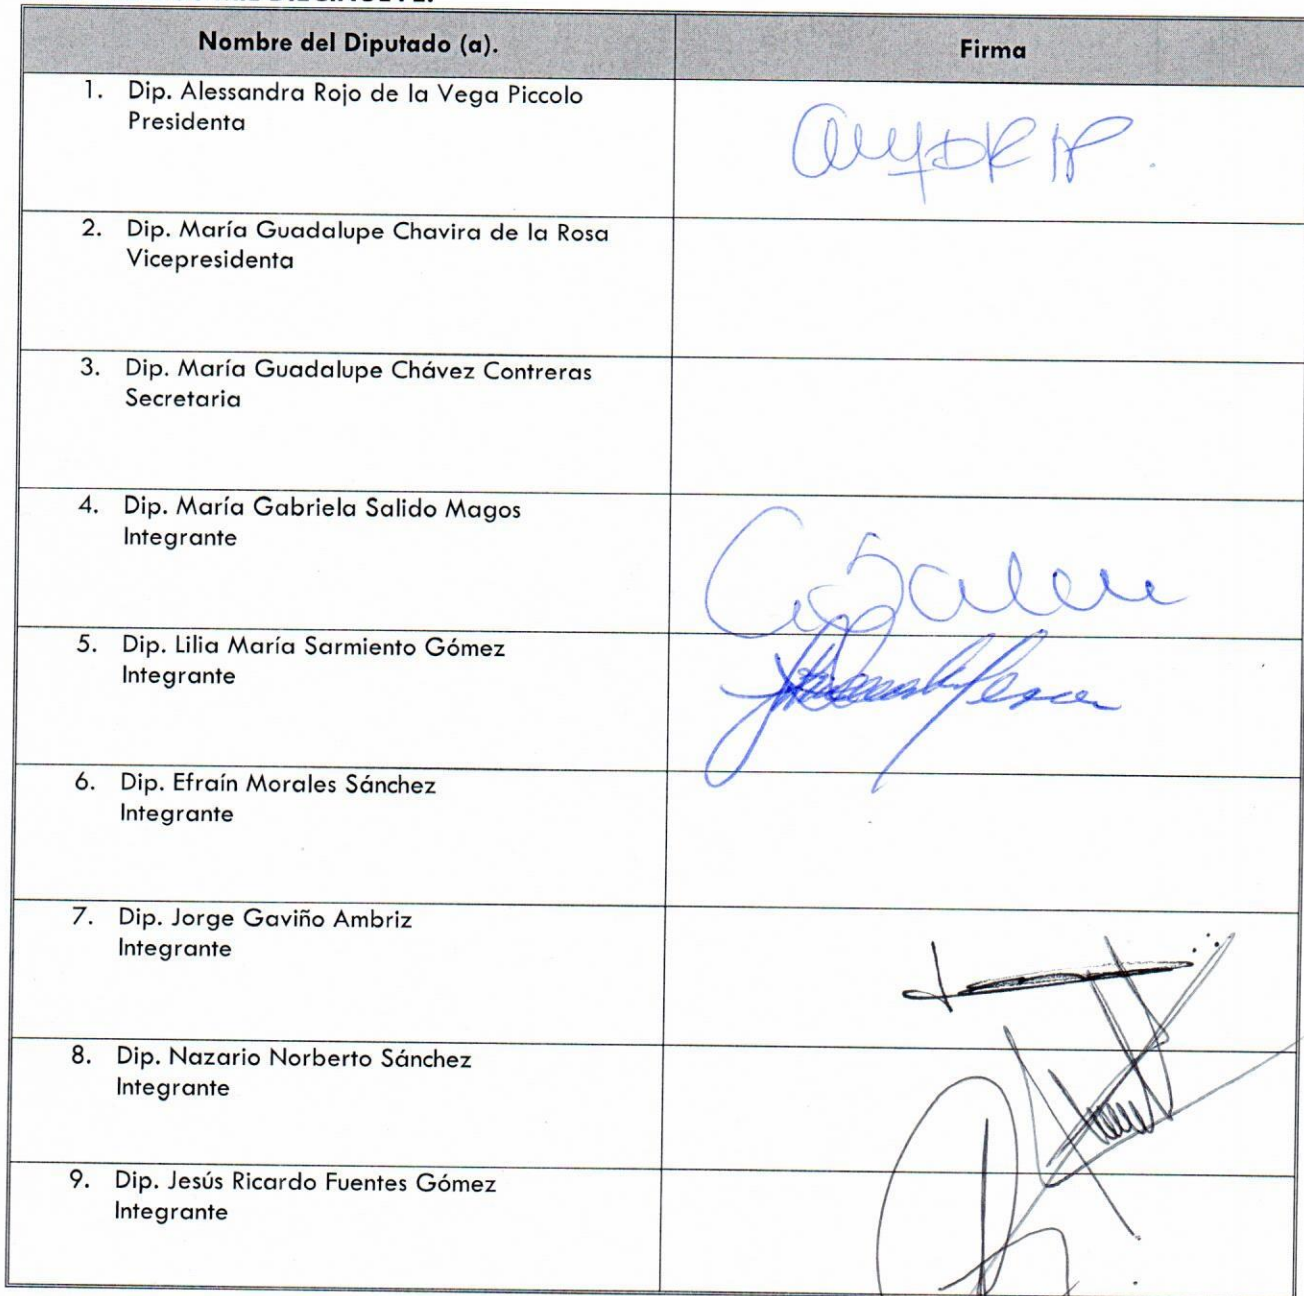 Nombre del Diputado (a).
Firma
1. Dip. Alessandra Rojo de la Vega Piccolo
Presidenta
2. Dip. María Guadalupe Chavira de la Rosa
Vicepresidenta
3. Dip. María Guadalupe Chávez Contreras
Secretaria
4. Dip. María Gabriela Salido Magos
Integrante
5. Dip. Lilia María Sarmiento Gómez
Integrante
6. Dip. Efraín Morales Sánchez
Integrante
7. Dip. Jorge Gaviño Ambriz
Integrante
8. Dip. Nazario Norberto Sánchez
Integrante
9. Dip. Jesús Ricardo Fuentes Gómez
Integrante